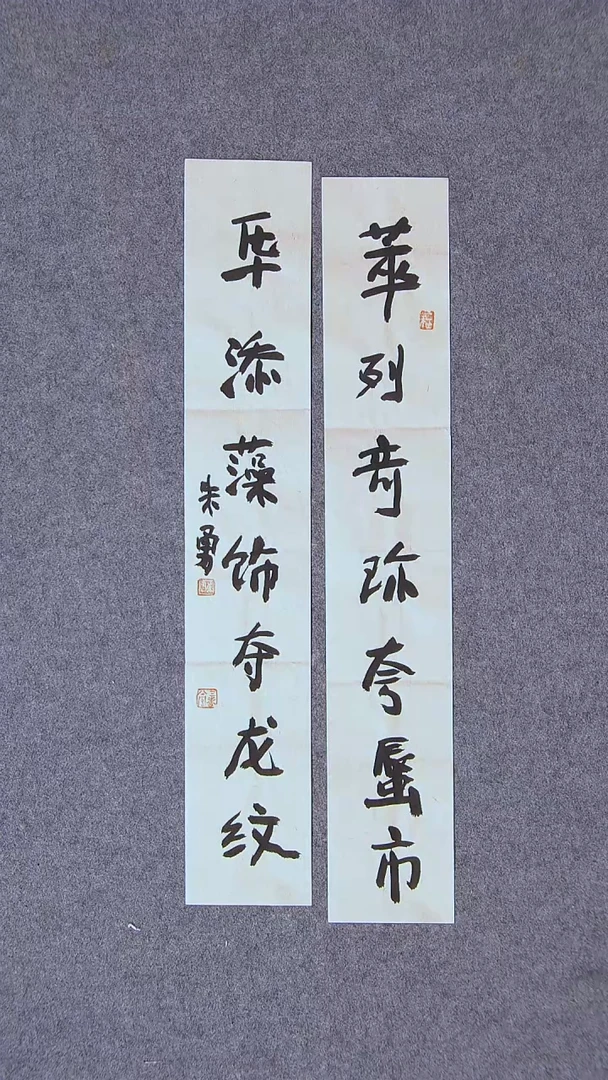 萃列奇珍夸蜃市
添藻饰夺龙纹
朱勇